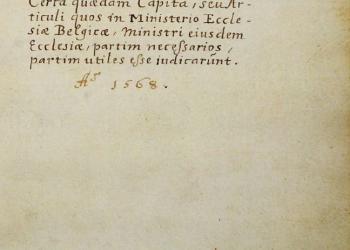 Certa quædam Capita, seu Ar-
ticuli quos in Ministerio Eccle-
siæ Belgicæ, Ministri eiusdem
Ecclesiæ, partim necessarios,
partim utiles esse iudicarunt.
Aº 1568.